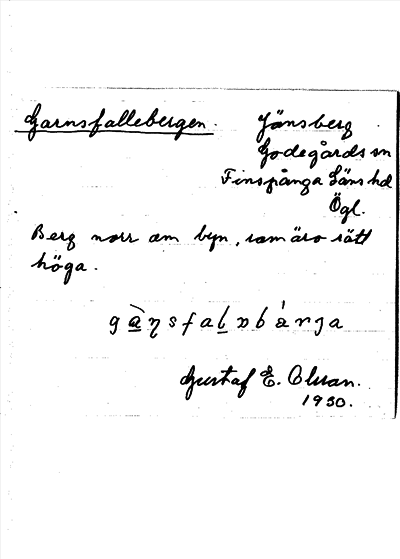 Garnsfallebergen.
Jänsberg
Godegårds sn
Finspånga Läns hd
Ögl.
Berg norr om byn, som äro rätt
höga.
Gustaf E. Olsson.
1930.